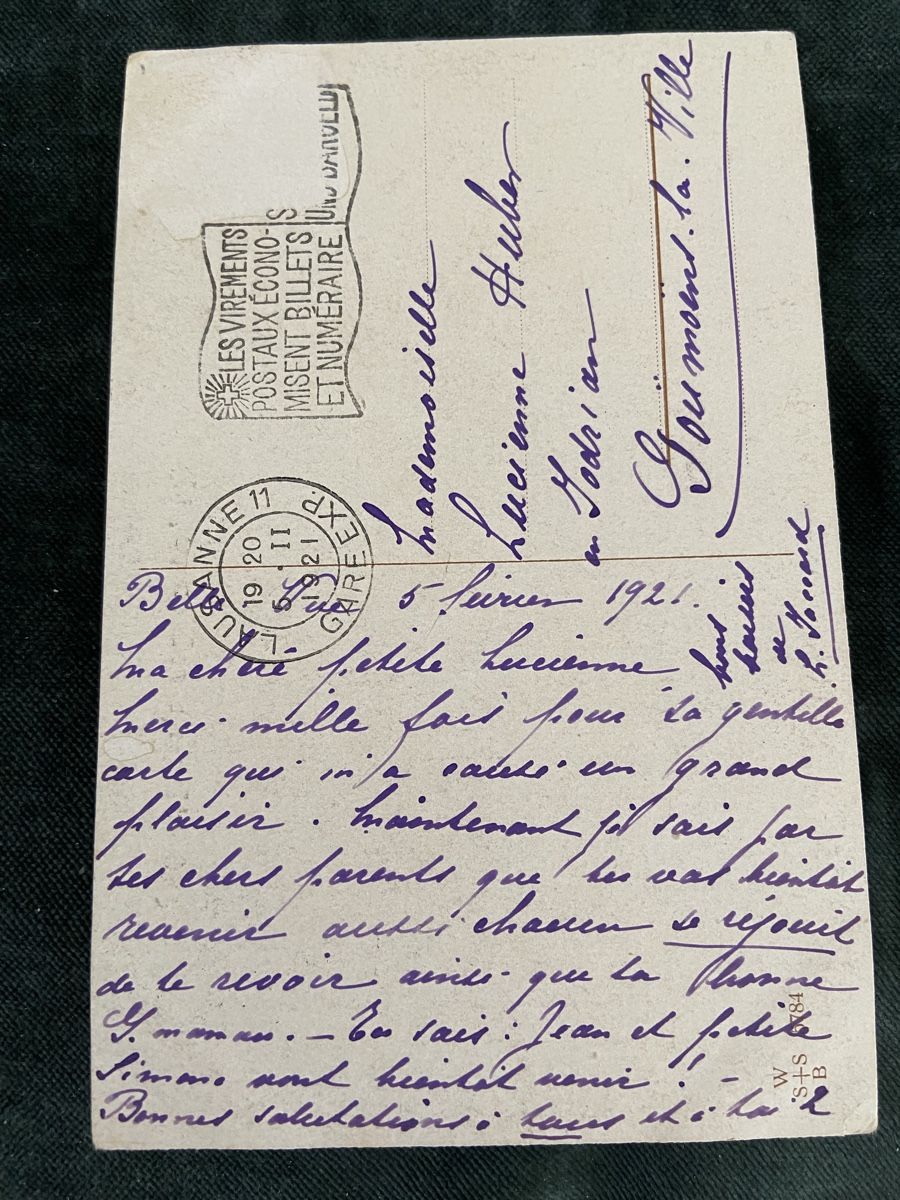 LES VIREMENTS
POSTAUX ÉCONO-
MISENT BILLETS
ET NUMÉRAIRE
LAUSANNE 11
19 20
5. II
1921
GARE EXP.
Mademoiselle
Lucienne Huber
en
Goumoëns-la-Ville
Belle Vue 5 février 1921.
Ma chère petite Lucienne
Merci mille fois pour ta gentille
carte qui m'a causé un grand
plaisir. Maintenant je sais par
tes chers parents que tu vas bientôt
revenir aussi chacun se réjouit
de te revoir ainsi que ta bonne
G. maman. – Tu sais: Jean et petite
Simone vont bientôt venir! –
Bonnes salutations à tous et à toi 2
bons baisers
de
W
S+S 6784
B